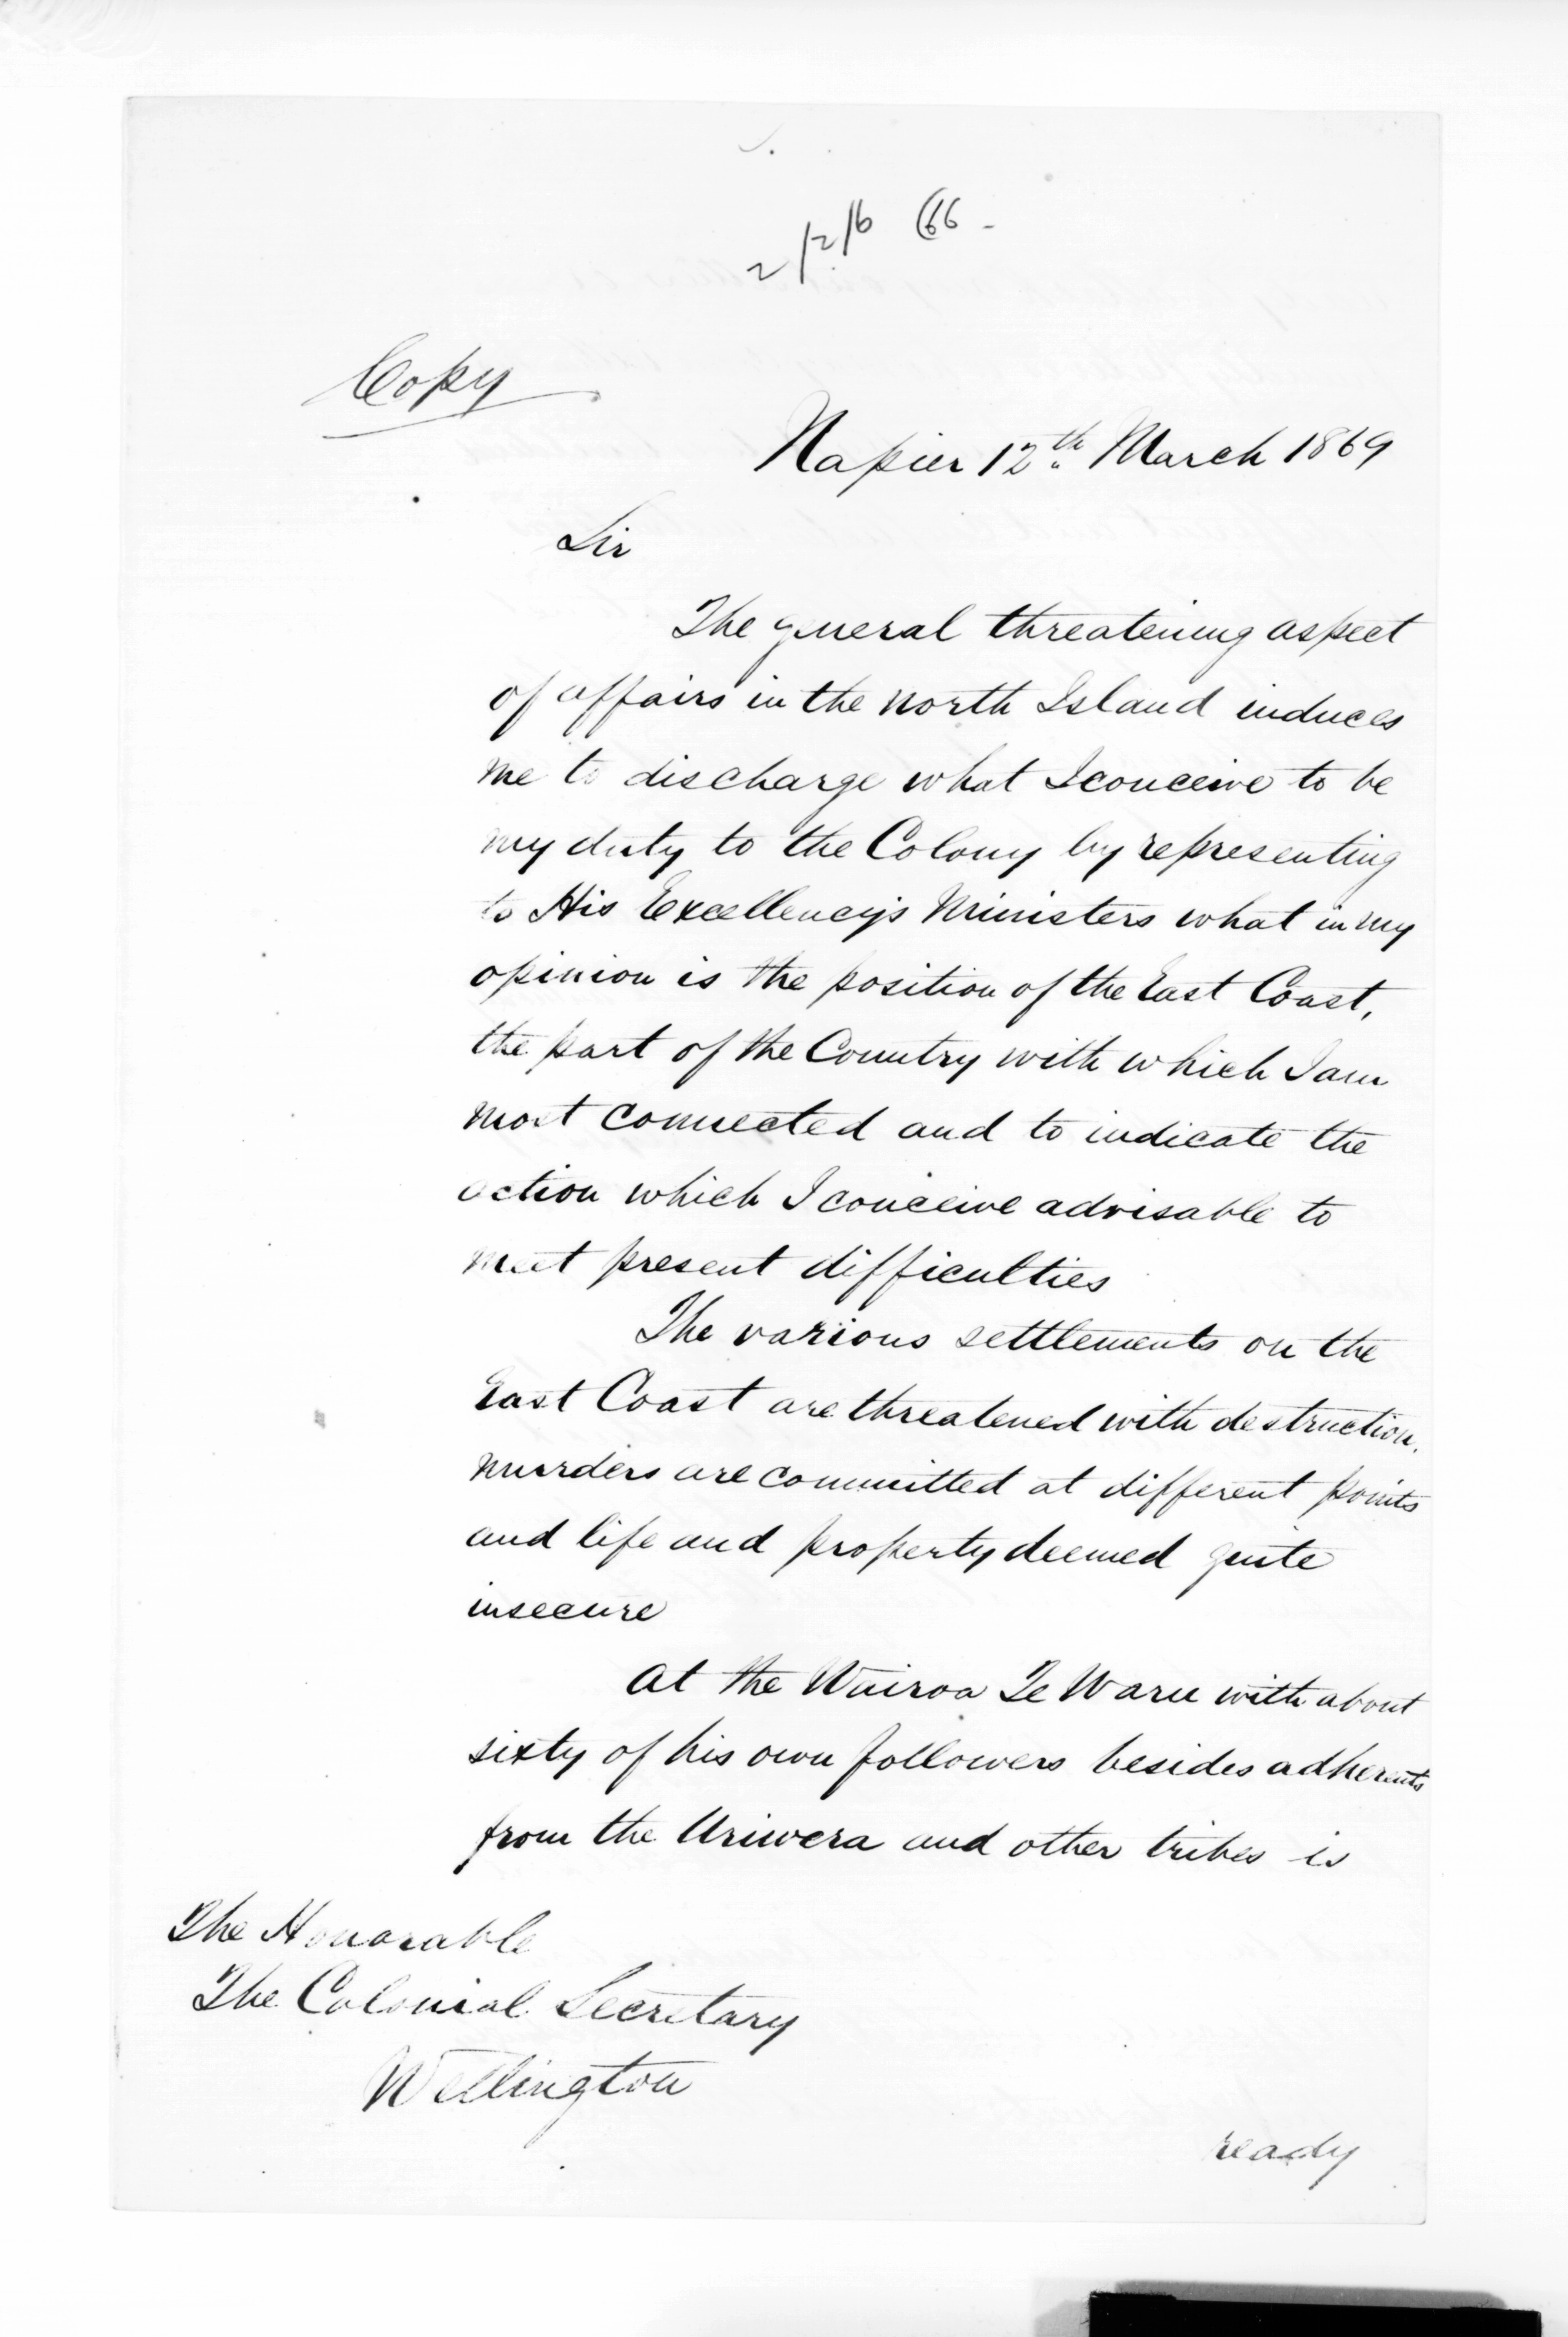 Copy
Napier 12th. March 1869
Sir
The general threatening aspect
of affairs in the North Island induces
me to discharge what I conceive to be
my duty to the Colony by representing
to His Excellency's Ministers what in my
opinion is the position of the East Coast,
the part of the Country with which I am
most connected and to indicate the
action which I conceive advisable to
meet present difficulties
The various settlements on the
East Coast are threatened with destruction,
murders are committed at different points
and life and property deemed quite
insecure
At the Wairoa Te Waru with about
sixty of his own followers besides adherents
from the Uriwera and other tribes is
The Honorable
The Colonial Secretary
Wellington
ready